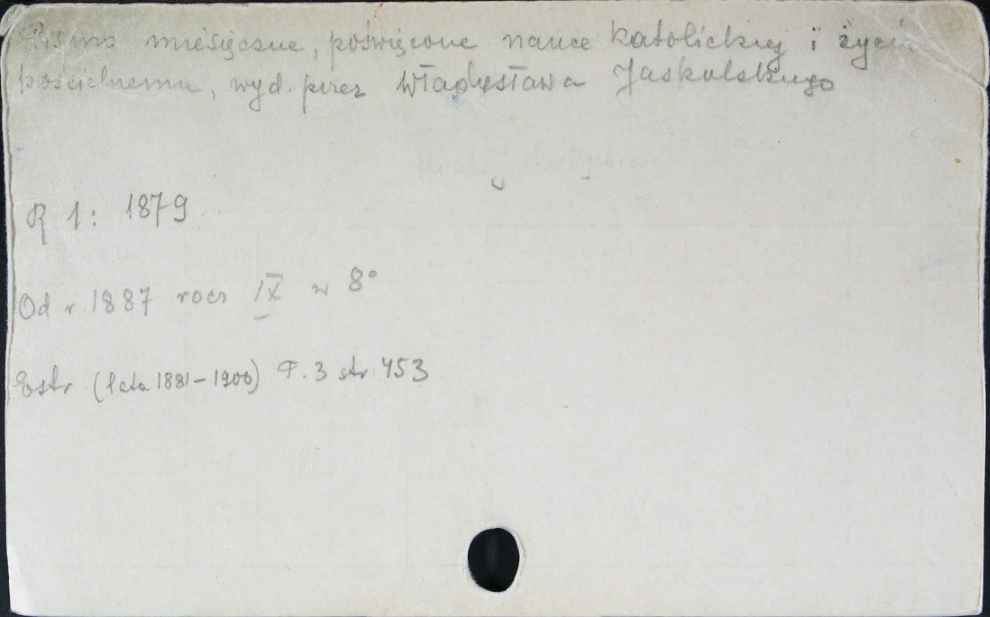 Pismo miesięczne, poświęcone nauce katolickiej i życiu
kościelnemu, wyd. przez Władysława Jaskulskiego
R 1: 1879
Od r 1887 rocz IX w 8°
Estr (lata 1881-1900) T. 3 str 453